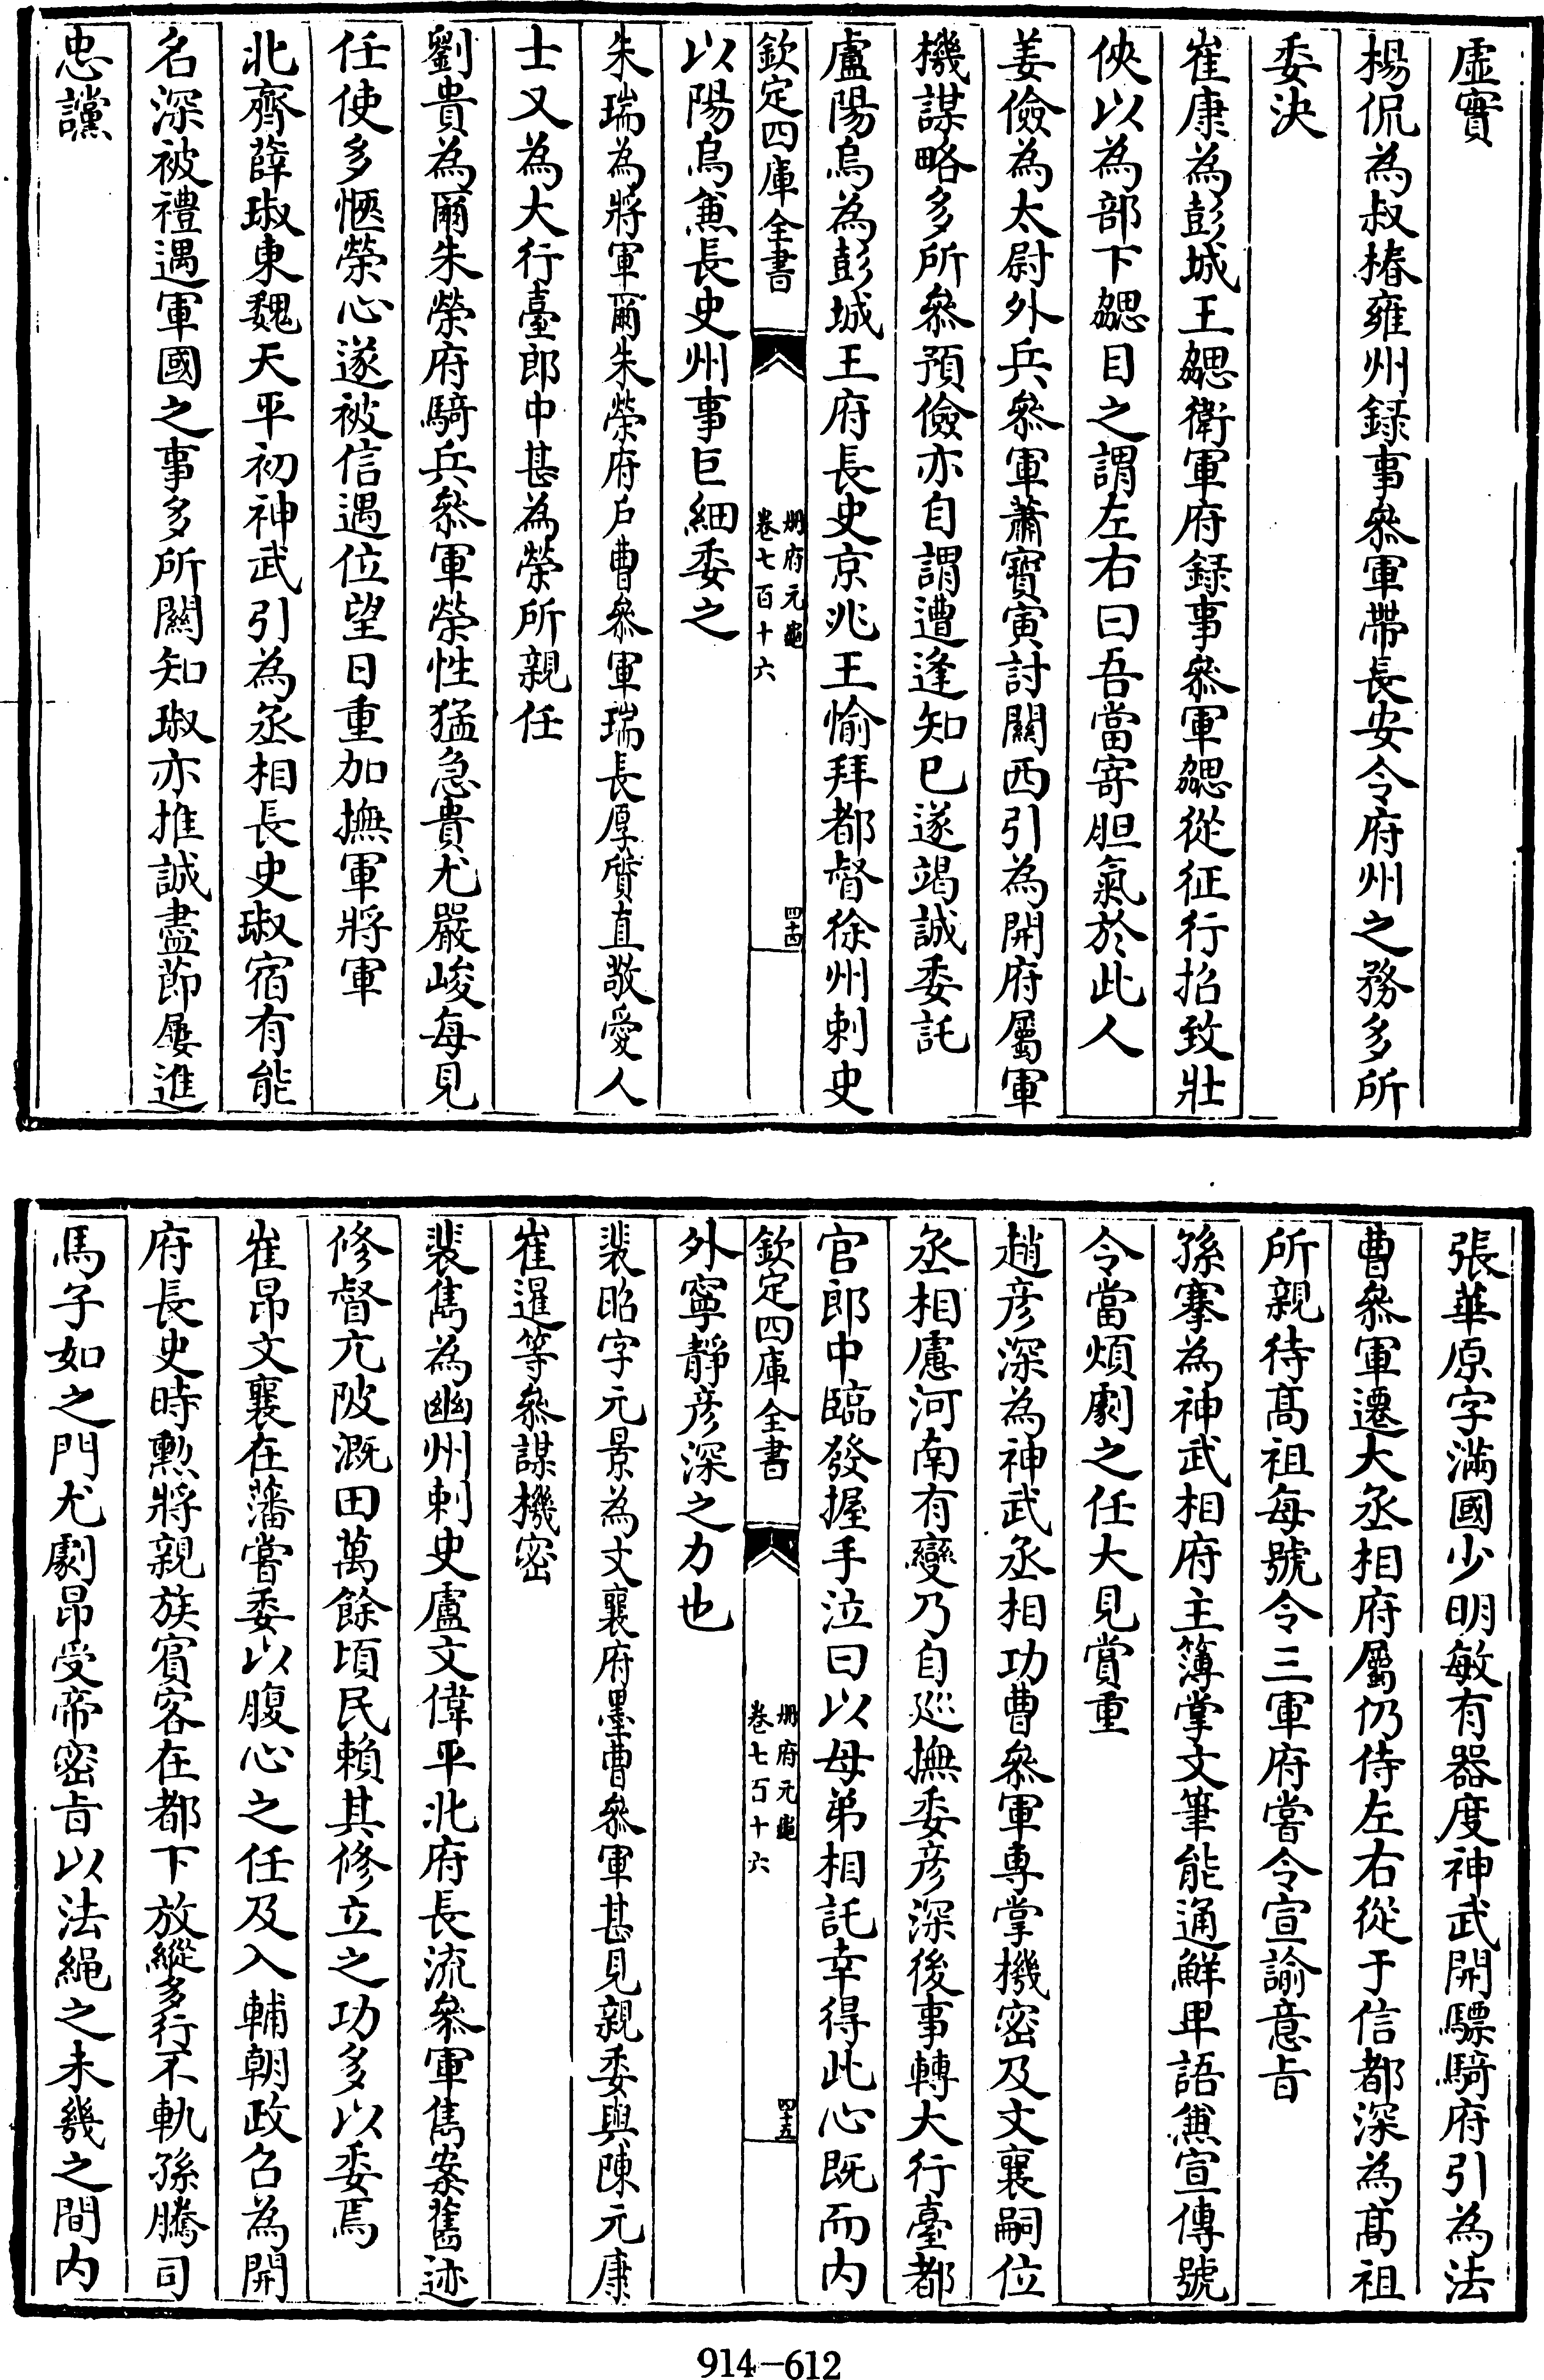 虚實
楊侃為叔椿雍州録事參軍帶長安令府州之務多所
委決
崔康為彭城王勰衛軍府録事參軍勰從征行招致壯
俠以為部下勰目之謂左右曰吾當寄胆氣於此人
姜儉為太尉外兵參軍蕭寳寅討關西引為開府屬軍
機謀略多所參預儉亦自謂遭逢知已遂竭誠委託
盧陽烏為彭城王府長史京兆王愉拜都督徐州刺史
欽定四庫全書
册府元龜
卷七百十六
四十四
以陽烏兼長史州事巨細委之
朱瑞為將軍爾朱榮府户曹參軍瑞長厚質直敬愛人
士又為大行臺郎中甚為榮所親任
劉貴為爾朱榮府騎兵參軍榮性猛急貴尤嚴峻每見
任使多愜榮心遂被信遇位望日重加撫軍將軍
北齊薛琡東魏天平初神武引為丞相長史琡宿有能
名深被禮遇軍國之事多所關知琡亦推誠盡節屢進
忠讜
張華原字滿國少明敏有器度神武開驃騎府引為法
曹參軍遷大丞相府屬仍侍左右從于信都深為髙祖
所親待髙祖每號令三軍府嘗令宣諭意㫖
孫搴為神武相府主簿掌文筆能通鮮卑語兼宣傳號
令當煩劇之任大見賞重
趙彦深為神武丞相功曹參軍専掌機密及文襄嗣位
丞相慮河南有變乃自巡撫委彦深後事轉大行臺都
官郎中臨發握手泣曰以母弟相託幸得此心既而内
欽定四庫全書
册府元龜
卷七百十六
四十五
外寧静彦深之力也
裴昭字元景為文襄府墨曹參軍甚見親委與陳元康
崔暹等參謀機密
裴雋為幽州刺史盧文偉平北府長流參軍雋案舊迹
修督亢陂溉田萬餘頃民賴其修立之功多以委焉
崔昂文襄在藩嘗委以腹心之任及入輔朝政召為開
府長史時勲將親族賓客在都下放縱多行不軌孫騰司
馬子如之門尤劇昂受帝密㫖以法繩之未幾之間内
914-612